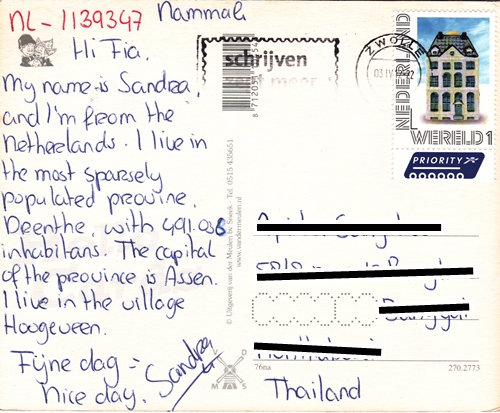 NL-1139347
Nammali
Hi Fia,
My name is Sandra,
and I'm from the
Netherlands. I live in
the most sparsely
populated provine,
Drenthe, with 491.036
inhabitans. The capital
of the province is Assen.
I live in the village
Hoogeveen.
Fijne dag =
nice day. Sandra
schrijven
meer
ZWOLLE
NEDERLAND
WERELD 1
PRIORITY
© Uitgeverij van der Meulen bv Sneek · Tel. 0515 435651
www.vandermeulen.nl
V O
M S
76na
270.2773
Thailand